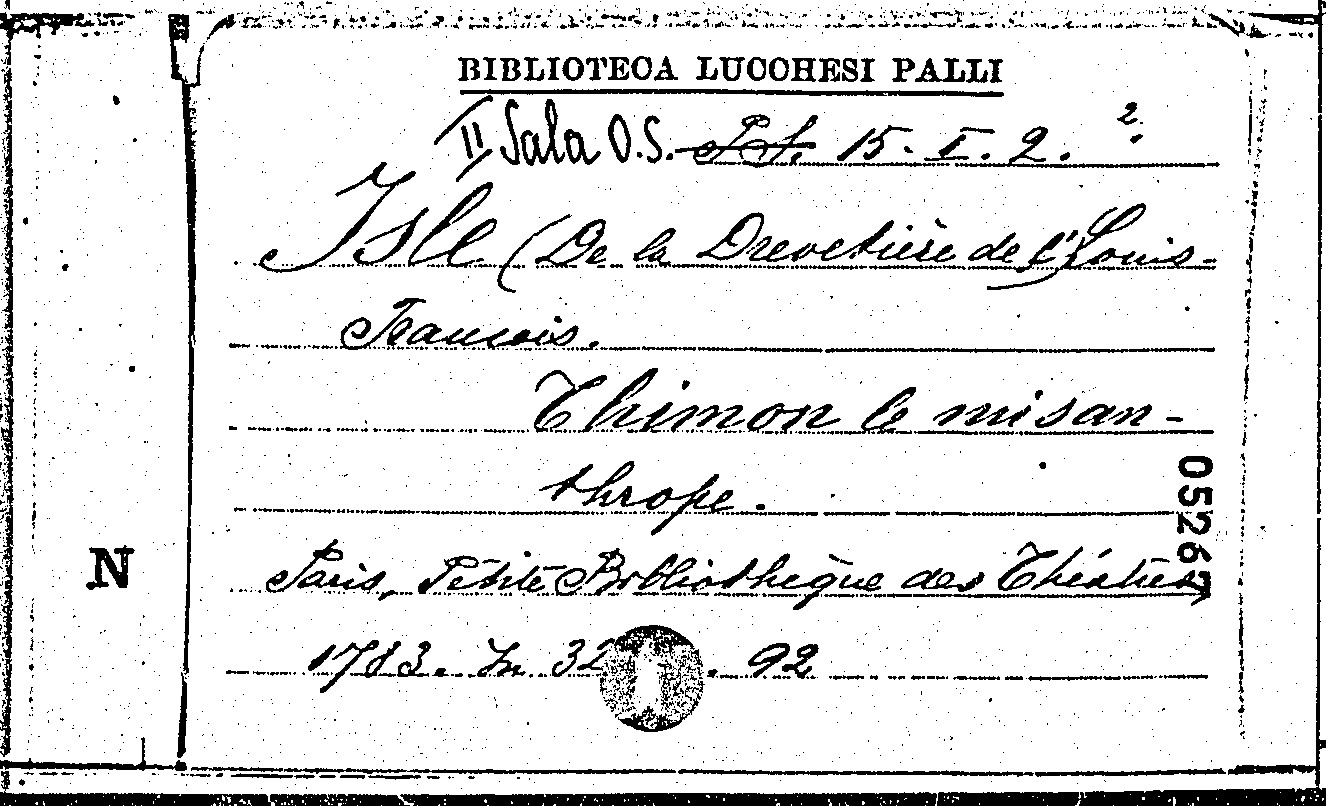 BIBLIOTECA LUCCHESI PALLI
II Sala O.S. 15-I.2. 2.
Isle (De la Drevetière de l') Louis-
François.
Thimon le misan-
thrope.
05267
N
Paris, Petite Bibliothèque des Théatres,
1783. In 32 . 92